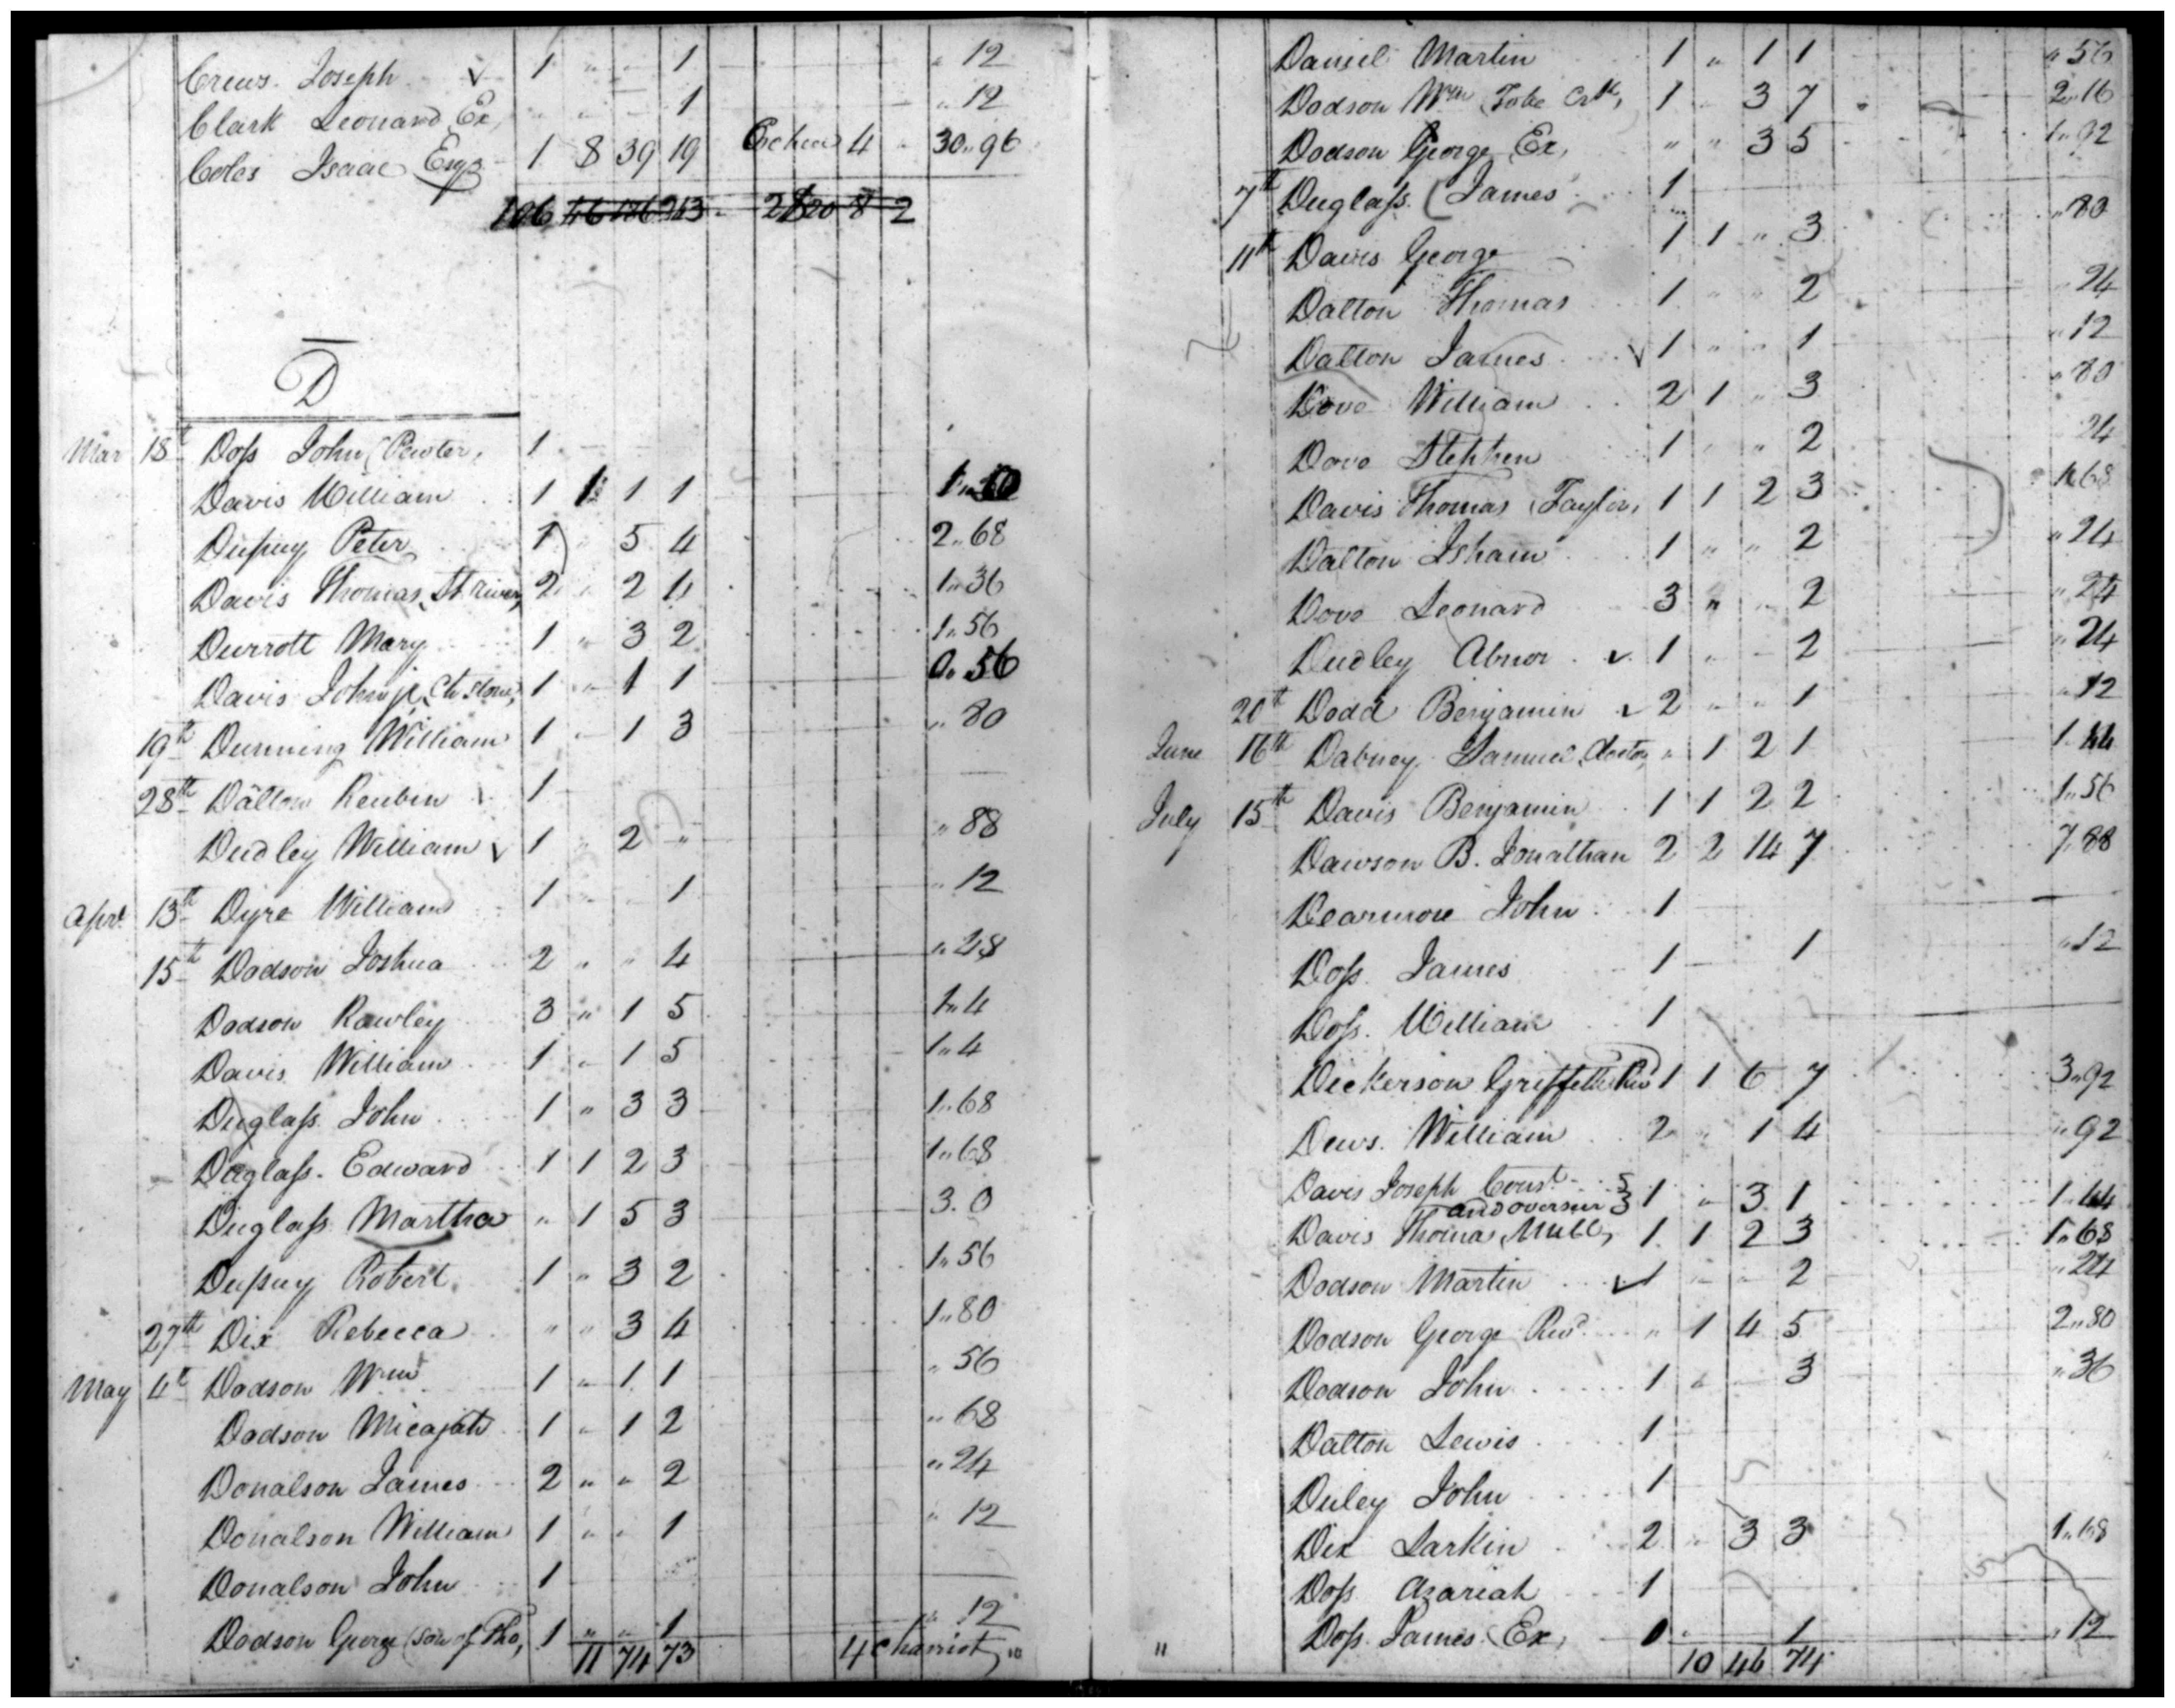 Crews Joseph ✓ 1 " " 1 " 12
Clark Leonard Ex, " " " 1 " 12
Coles Isaac Esqr 1 8 39 19 4 " 30 " 96
106 46 186 213 2820 8 2
D
Mar 18t Doss John (Pewter, 1
Davis William 1 1 1 1
Dupuy Peter 1 " 5 4 2 " 68
Davis Thomas, St. river, 2 " 2 4 1 " 36
Durrott Mary 1 " 3 2 1 " 56
Davis John jr, 1 " 1 1 0 " 56
19th Dunning William 1 " 1 3 " 80
28th Dalton Reubin 1
Dudley William ✓ 1 " 2 " " 88
Aprl 13th Dyre William 1 " " 1 " 12
15th Dodson Joshua 2 " " 4 " 48
Dodson Rawley 3 " 1 5 1 " 4
Davis William 1 " 1 5 1 " 4
Duglass John 1 " 3 3 1 " 68
Duglass Edward 1 1 2 3 1 " 68
Duglass Martha " 1 5 3 3. 0
Dupuy Robert 1 " 3 2 1 " 56
27th Dix Rebecca " " 3 4 1 " 80
May 4t Dodson Wm 1 " 1 1 " 56
Dodson Micajah 1 " 1 2 " 68
Donalson James 2 " " 2 " 24
Donalson William 1 " " 1 " 12
Donalson John 1
Dodson George (son of Tho, 1 " " 1 " 12
11 74 73 4 Charriot
Daniel Martin 1 " 1 1 " 56
Dodson Wm Tobe Crk, 1 " 3 7 2 " 16
Dodson George Ex, " " 3 5 1 " 92
7th Duglass (James 1
11th Davis George 1 1 " 3 " 80
Dalton Thomas 1 " " 2 " 24
Dalton James ✓ 1 " " 1 " 12
Dove William 2 1 " 3 " 80
Dove Stephen 1 " " 2 24
Davis Thomas (Taylor, 1 1 2 3 1 " 68
Dalton Isham 1 " " 2 " 24
Dove Leonard 3 " " 2 " 24
Dudley Abner ✓ 1 " " 2 " 24
20th Dodd Benjamin ✓ 2 " " 1 " 12
June 16th Dabney Samuel, doctor, " 1 2 1 1 " 44
July 15th Davis Benjamin 1 1 2 2 1 " 56
Dawson B. Jonathan 2 2 14 7 7 88
Dearmore John 1
Doss James 1 1 " 12
Doss William 1
Dickerson Griffith Rev 1 1 6 7 3 " 92
Dews William 2 " 1 4 " 92
Davis Joseph Const
and oversur 1 " 3 1 1 " 44
Davis Thomas, Mull, 1 1 2 3 1 " 68
Dodson Martin ✓ 1 " " 2 " 24
Dodson George Revd. " 1 4 5 2 " 80
Dodson John 1 " " 3 " 36
Dalton Lewis 1
Duley John 1
Dix Larkin 2 " 3 3 1 " 68
Doss Azariah 1
Doss James Ex, 0 " 1 " 12
10 46 74